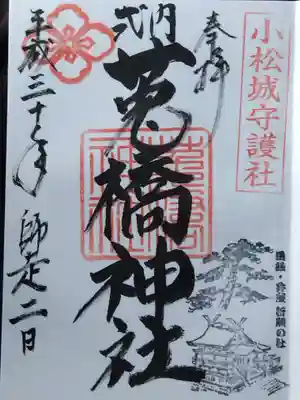 小松城守護社
奉拝
式内
莵橋神社
平成三十年
師走二日